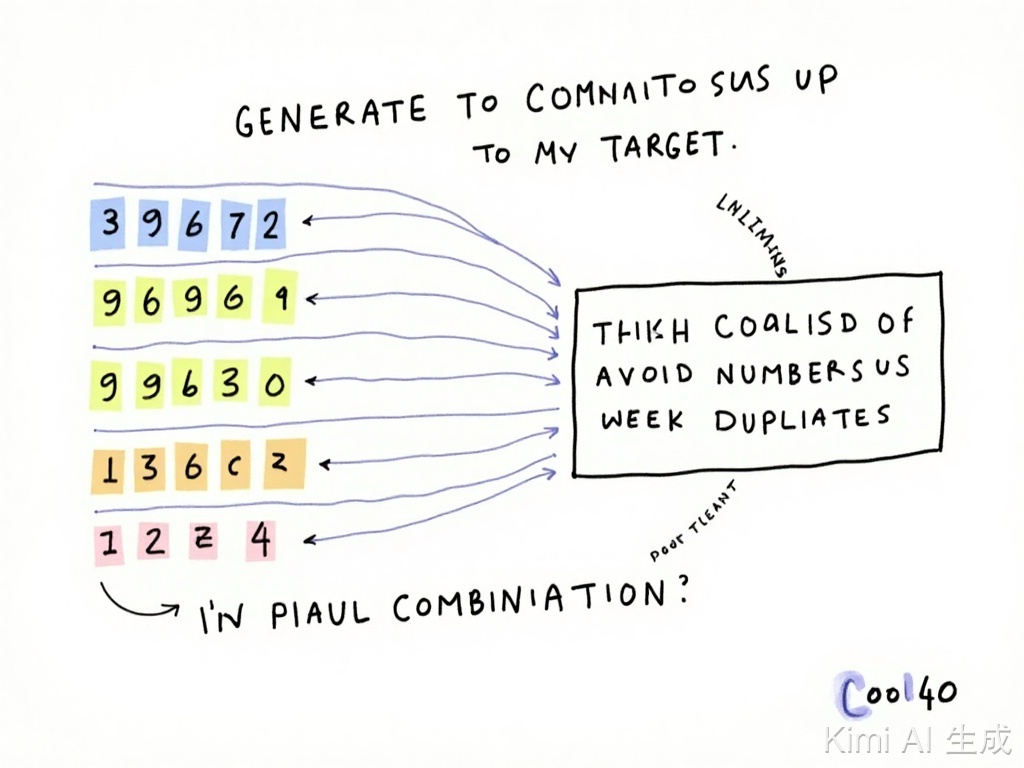 GENERATE TO COMNAITO SUS UP
TO MY TARGET.
3 9 6 7 2
9 6 9 6 9
9 9 6 3 0
1 3 6 C 2
1 2 Z 4
THIKH COALISD OF
AVOID NUMBERS US
WEEK DUPLIATES
POOT TLEANT
I'N PIAUL COMBINIATION?
Cool40
Kimi AI 生成